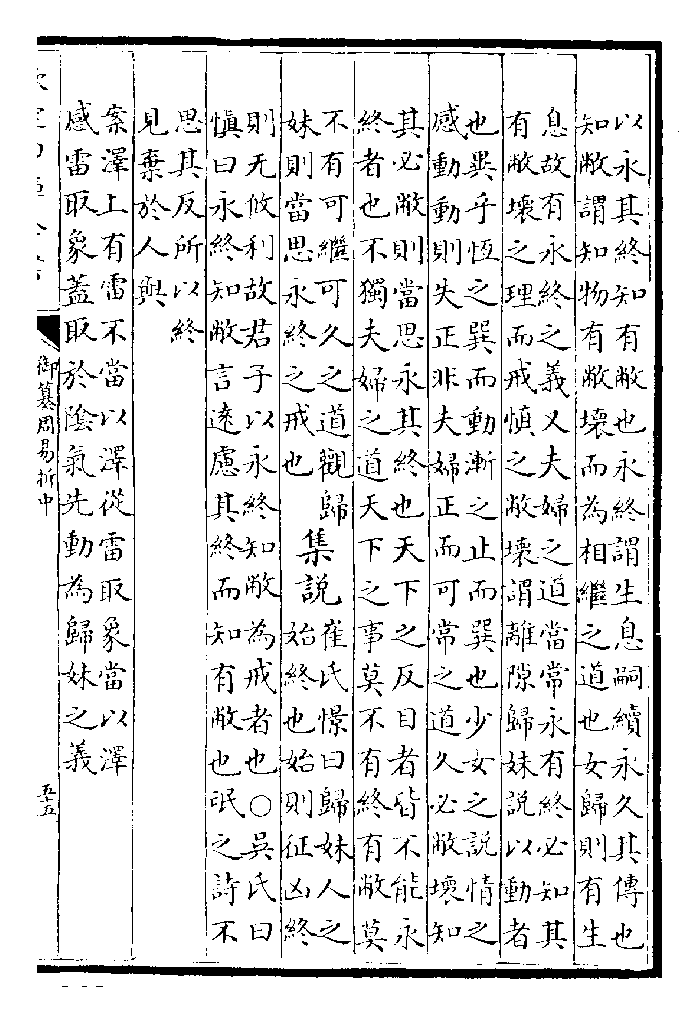 以永其終知有敝也永終謂生息嗣續永久其傳也
知敝謂知物有敝壞而為相繼之道也女歸則有生
息故有永終之義又夫婦之道當常永有終必知其
有敝壞之理而戒慎之敝壞謂離隙歸妹說以動者
也異乎恆之巽而動漸之止而巽也少女之說情之
感動動則失正非夫婦正而可常之道久必敝壞知
其必敝則當思永其終也天下之反目者皆不能永
終者也不獨夫婦之道天下之事莫不有終有敝莫
不有可繼可久之道觀歸
妹則當思永終之戒也
集説
崔氏憬曰歸妹人之
始終也始則征凶終
則无攸利故君子以永終知敝為戒者也○吳氏曰
慎曰永終知敝言遠慮其終而知有敝也氓之詩不
思其反所以終
見棄於人與
案澤上有雷不當以澤從雷取象當以澤
感雷取象蓋取於陰氣先動為歸妹之義
御纂周易折中
五十五